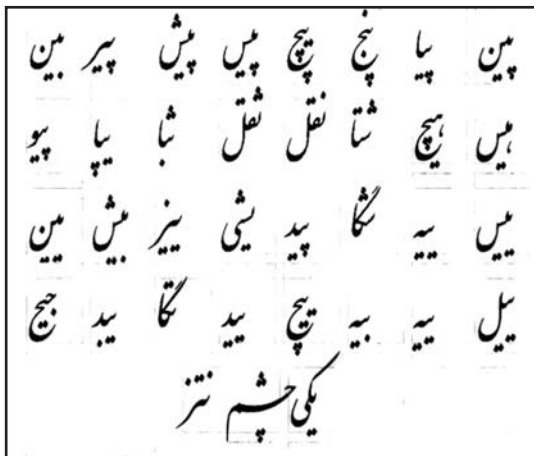 پین پیا پنج پیچ پیس پیش پیر بین
ہیس ہیچ شتا نقل ثقل ثبا یپا پیو
ییس ییہ شگا پید یشی ییز بیش یین
ییل ییہ بیہ پیچ یید تگا یبد جیح
یکی چشم نتز